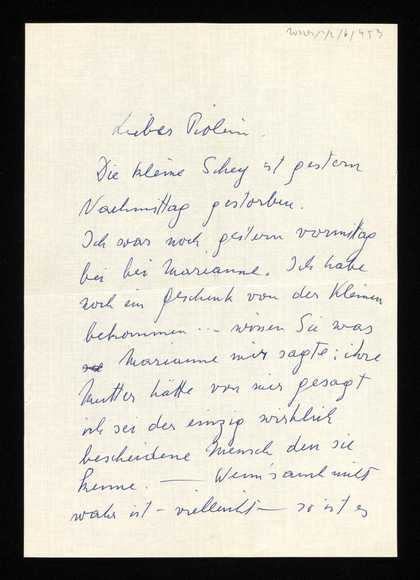 Lieber Piolein.
Die kleine Schey ist gestern
Nachmittag gestorben.
Ich war noch gestern vormittag
bei bei Marianne. Ich habe
noch ein Geschenk von der Kleinen
bekommen... wissen Sie was
Marianne mir sagte: ihre
Mutter hätte von mir gesagt
ich sei der einzig wirklich
bescheidene Mensch den sie
kenne. — Wenn's auch nicht
wahr ist – vielleicht – so ist es